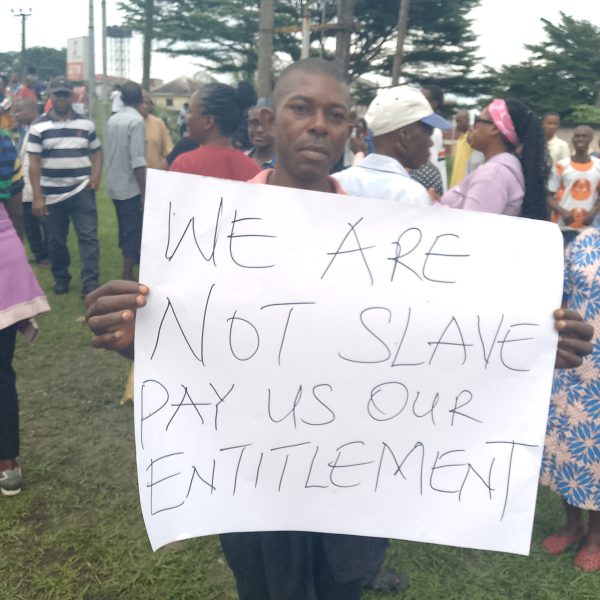 WE ARE
NOT SLAVE
PAY US OUR
ENTITLEMENT